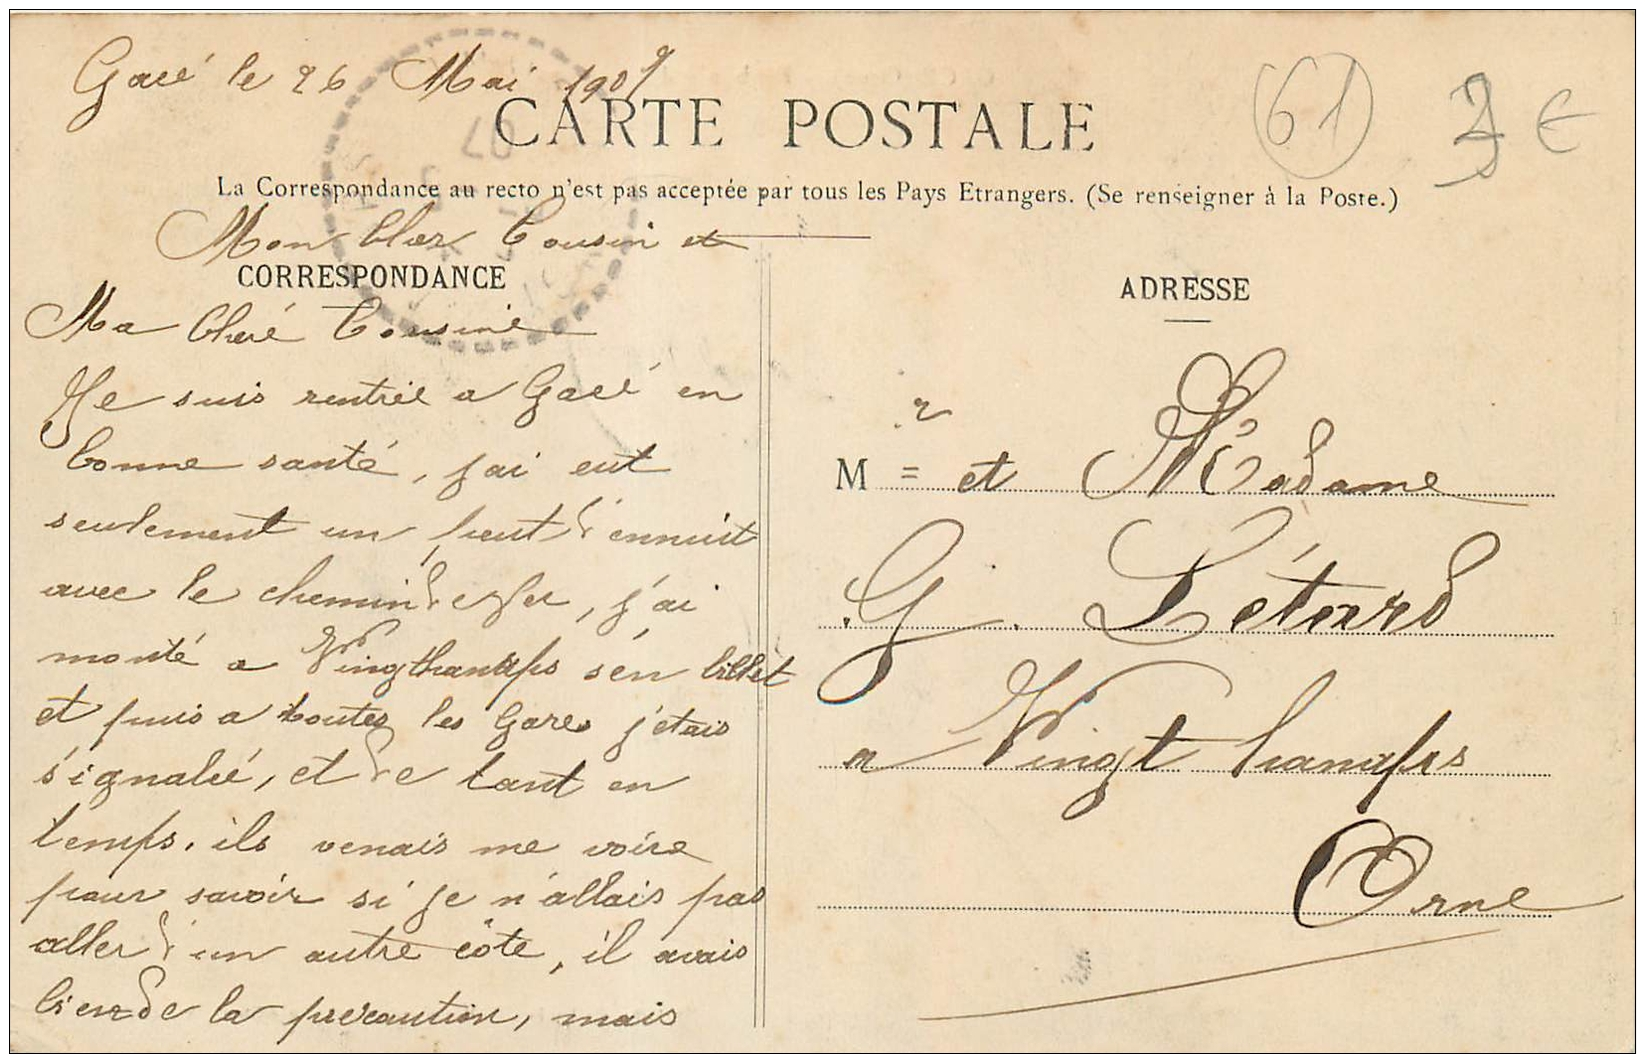 Gacé le 26 Mai 1907
CARTE POSTALE
La Correspondance au recto n'est pas acceptée par tous les Pays Etrangers. (Se renseigner à la Poste.)
Mon Cher Cousin et
CORRESPONDANCE
Ma Cheré Cousine
Je suis rentrée a Gacé en
bonne santé, j'ai eut
seulement un peut d'ennuit
avec le chemin de fer, j'ai
monté a Vingthanaps s'en billet
et puis a toutes les Gares j'etais
s'ignaleé, et de tant en
temps. ils venais me voire
pour savoir si je n'allais pas
aller d'un autre côte, il avais
bien de la precaution, mais
61
€
ADRESSE
M r et Madame
G. Létard
a Vingt hanaps
Orne
07